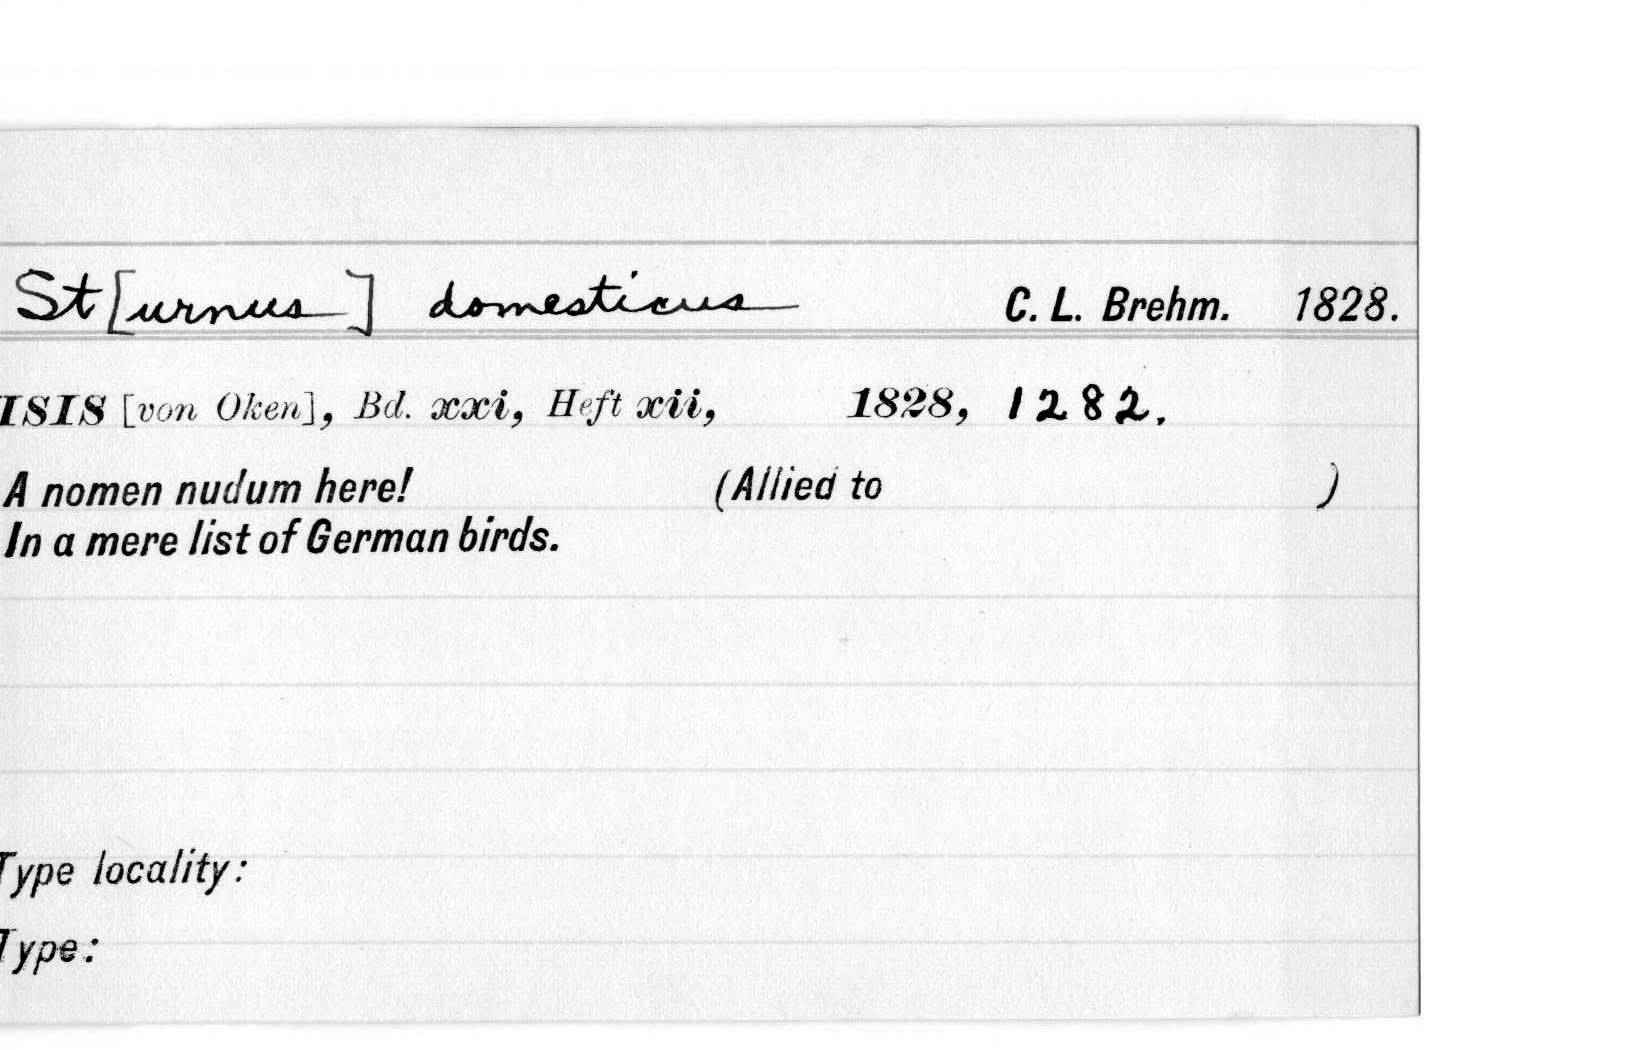 St[urnus] domesticus C. L. Brehm. 1828.
ISIS [von Oken], Bd. xxi, Heft xii, 1828, 1282.
A nomen nudum here! (Allied to )
In a mere list of German birds.
Type locality:
Type: